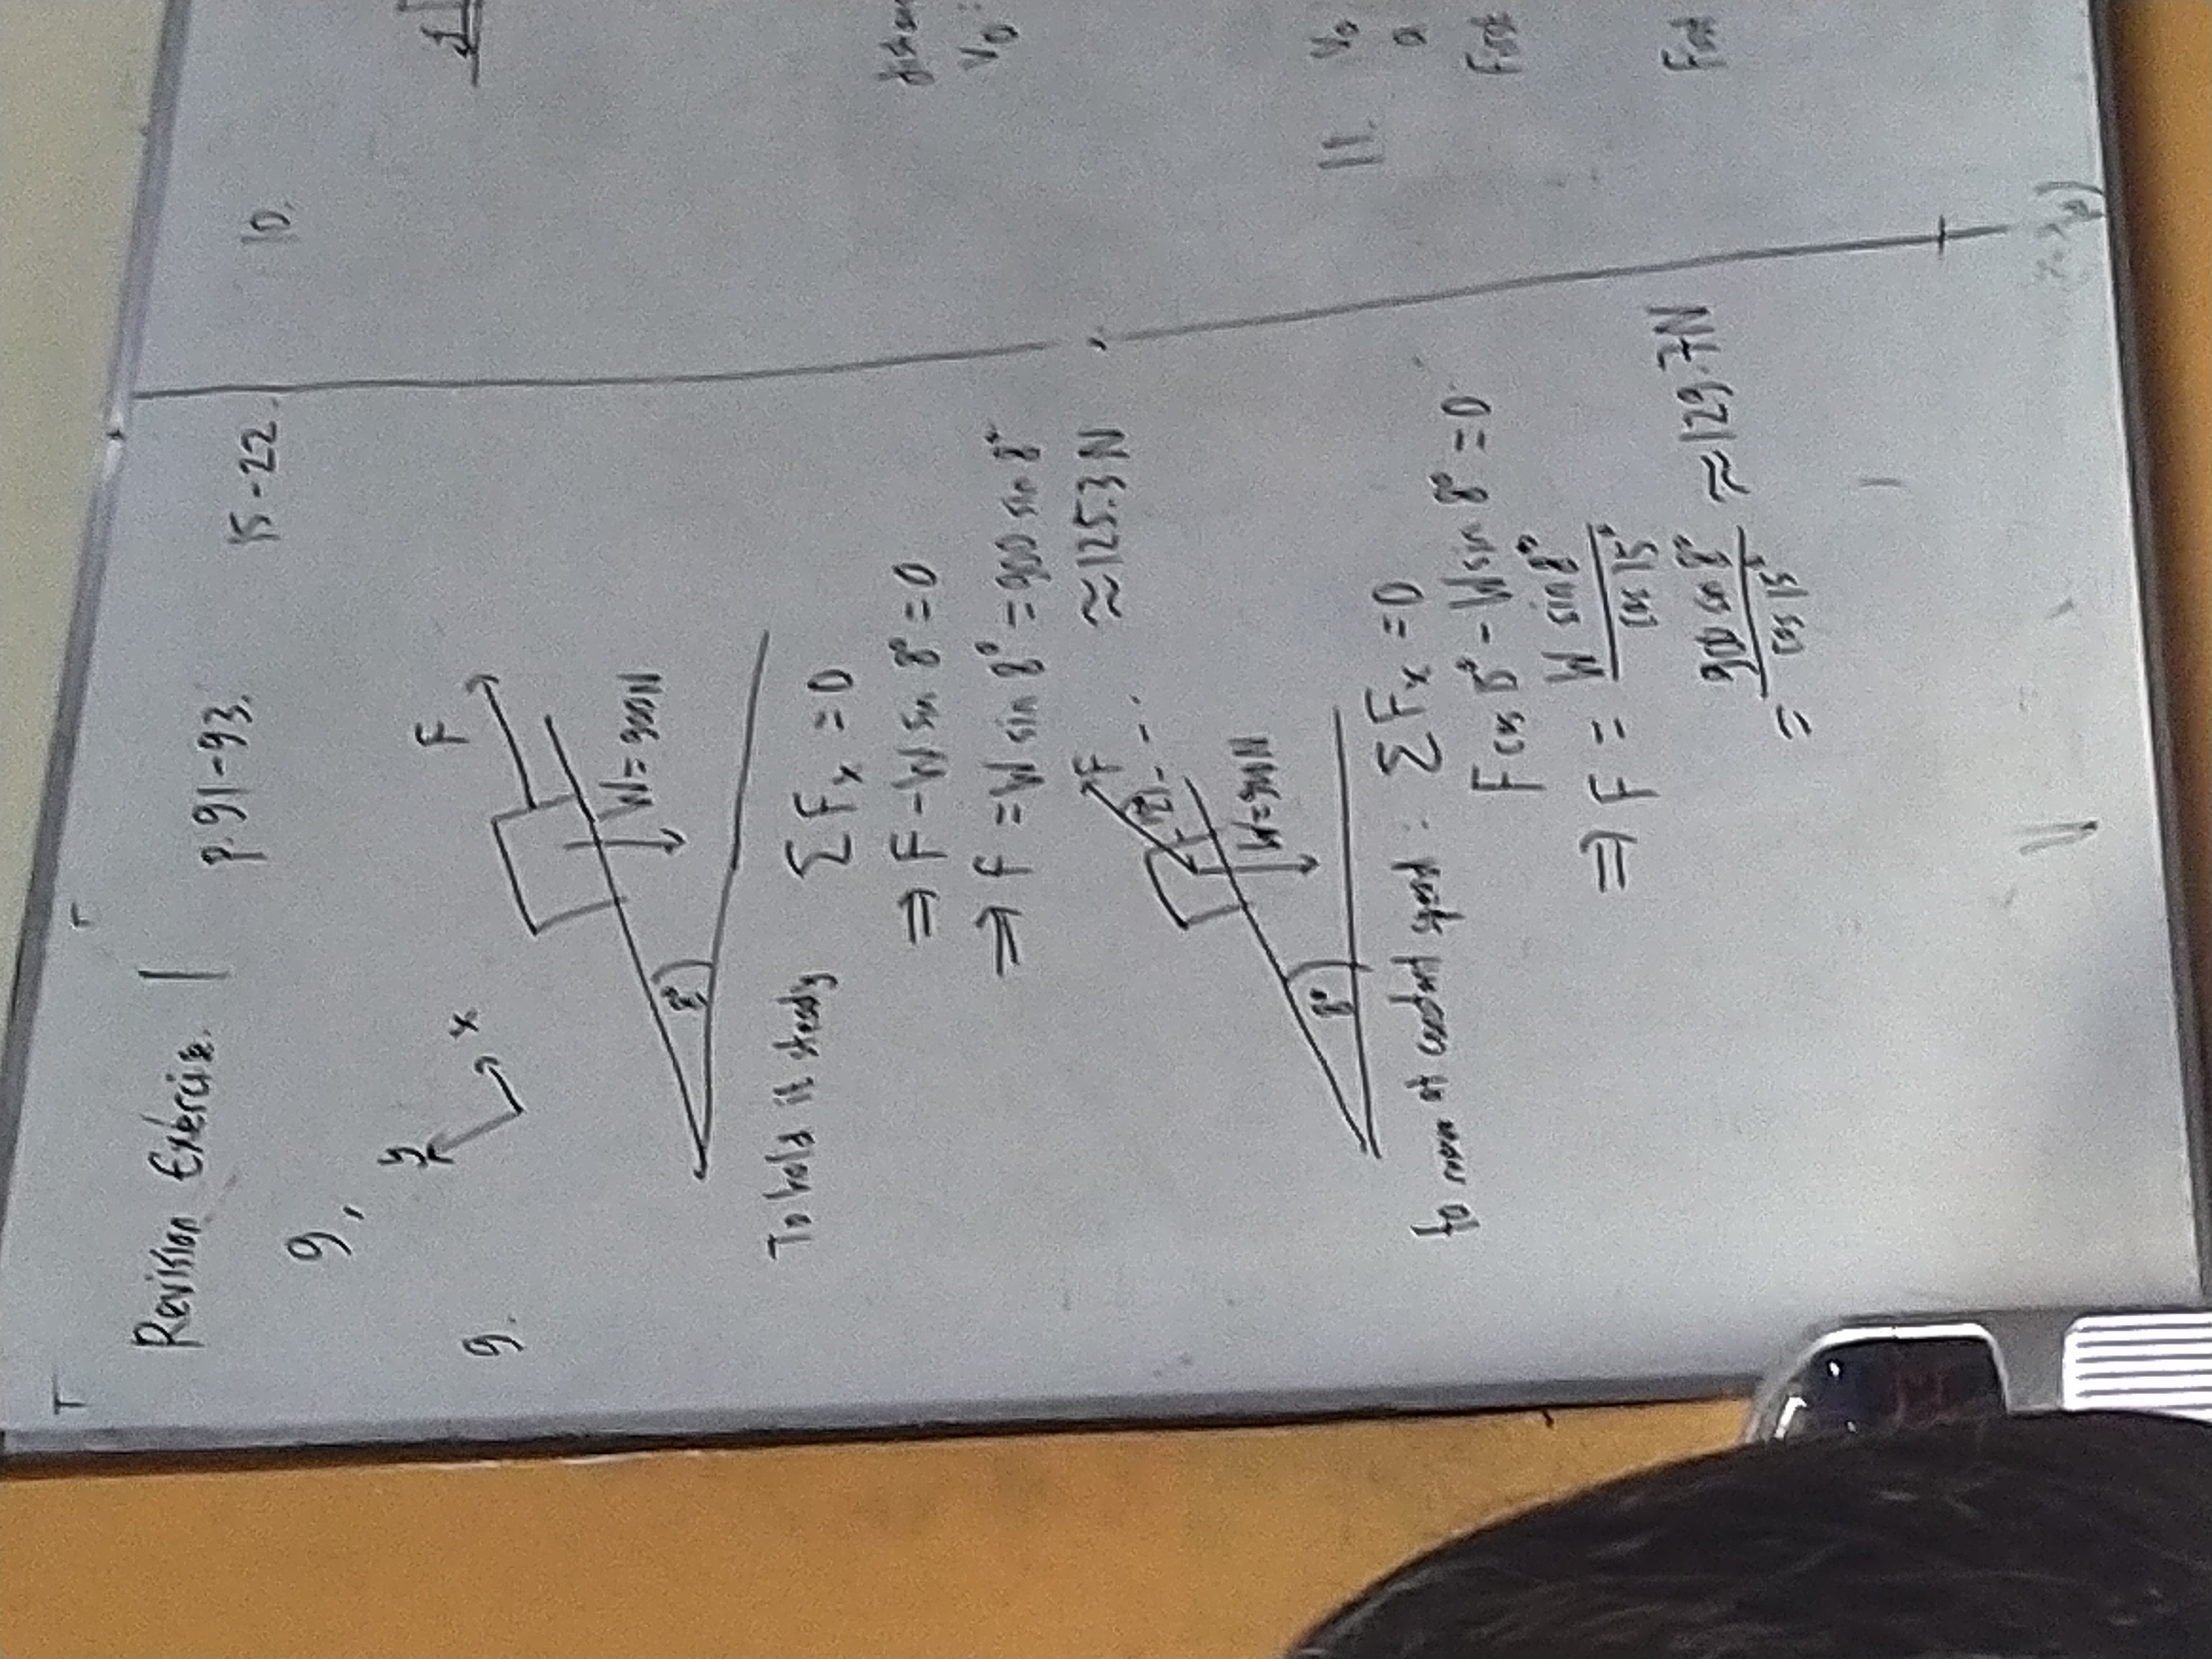 Revision Exercise. 1 p.91-93. 15-22.
9,
9.
y
x
F
W=900N
8°
To hold it steady ΣFx = 0
⇒ F - W sin 8° = 0
⇒ F = W sin 8° = 900 sin 8°
≈ 125.3 N
F
W=900N
8°
to move at constant speed : ΣFx = 0
F cos 15° - W sin 8° = 0
⇒ F = W sin 8° / cos 15°
= 900 sin 8° / cos 15° ≈ 129.7N
10.
f
V₀
11. V₀
a
First